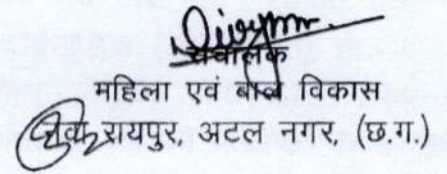 संचालक
महिला एवं बाल विकास
नवा रायपुर, अटल नगर, (छ.ग.)